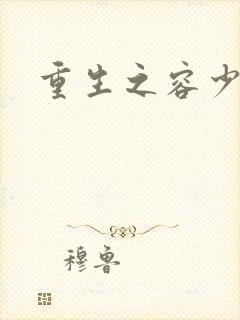 重生之容少
穆鲁